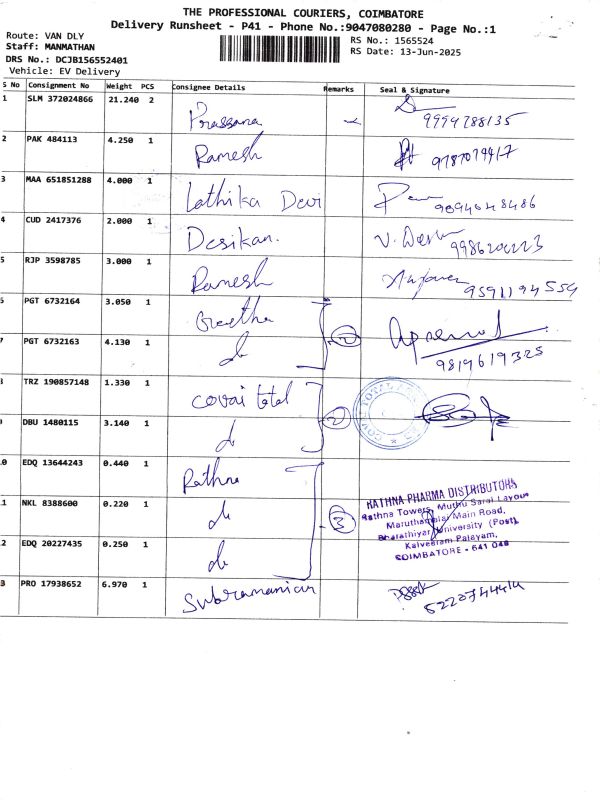 THE PROFESSIONAL COURIERS, COIMBATORE
Delivery Runsheet - P41 - Phone No.:9047080280 - Page No.:1
Route: VAN DLY
Staff: MANMATHAN
DRS No.: DCJB156552401
Vehicle: EV Delivery
RS No.: 1565524
RS Date: 13-Jun-2025
S No Consignment No Weight PCS Consignee Details Remarks Seal & Signature
1 SLM 372024866 21.240 2 Prassana
9994788135
2 PAK 484113 4.250 1 Ramesh
3 MAA 651851288 4.000 1 Lathika Devi
4 CUD 2417376 2.000 1 Desikan.
5 RJP 3598785 3.000 1 Ramesh
9591194554
6 PGT 6732164 3.050 1 Geetha
7 PGT 6732163 4.130 1 do 2
9819619325
8 TRZ 190857148 1.330 1 covai total
9 DBU 1480115 3.140 1 do 2
10 EDQ 13644243 0.440 1 Rathna
11 NKL 8388600 0.220 1 do 3
12 EDQ 20227435 0.250 1 do
RATHNA PHARMA DISTRIBUTORS
Rathna Towers, Muthu Saral Layout
Maruthamalai Main Road,
Bharathiyar University (Post),
Kalveeram Palayam,
COIMBATORE - 641 046
13 PRO 17938652 6.970 1 Subramanian